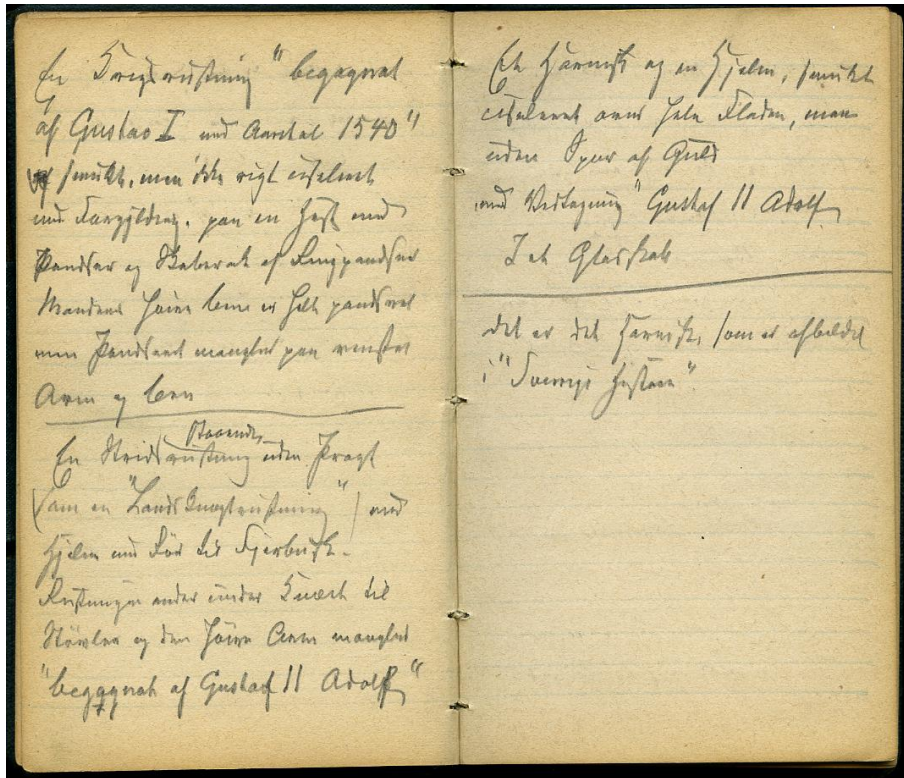 En Krigsrustning "begagnat
af Gustav I med Aarstal 1540"
smukt, men ikke rigt ciseleret
med Forgyldning. paa en Hest med
Pandser og Skaberak af Ringpandser
Mandens høire been er helt pandsret
men Pandseret mangler paa venstre
Arm og been
En Stridsrustning staaende, uden Pragt
(som en "Landsknegtrustning") med
Hjelm med Rör til Fjerbusk.
Rustningen ender under Knæet til
Støvler og den høire Arm mangler
"begagnat af Gustaf II Adolf"
Et Harnisk og en Hjelm, smukt
ciseleret over hele Fladen, men
uden Spor af Guld
med Vedtegning "Gustaf II Adolf
I et Glasskab
det er det Harnisk, som er afbildet
i "Sverges Historie".